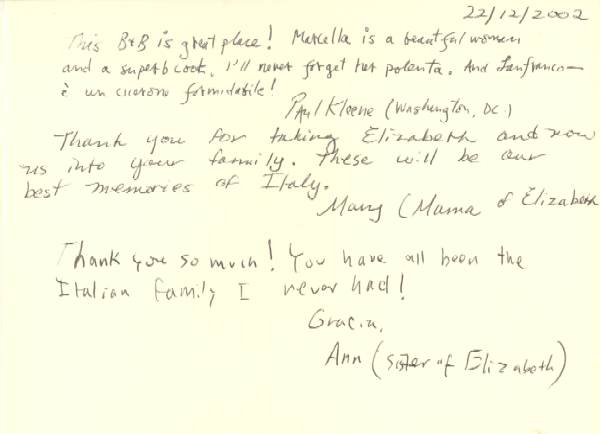 22/12/2002
This B&B is great place! Marcella is a beautful women
and a superb cook. I'll never forget her polenta. And Lanfranco—
è un cicerone formidabile!
Paul Kleene (Washington, DC.)
Thank you for taking Elizabeth and now
us into your family. These will be our
best memories of Italy.
Mary (Mama of Elizabeth
Thank you so much! You have all been the
Italian family I never had!
Gracia,
Ann (sister of Elizabeth)